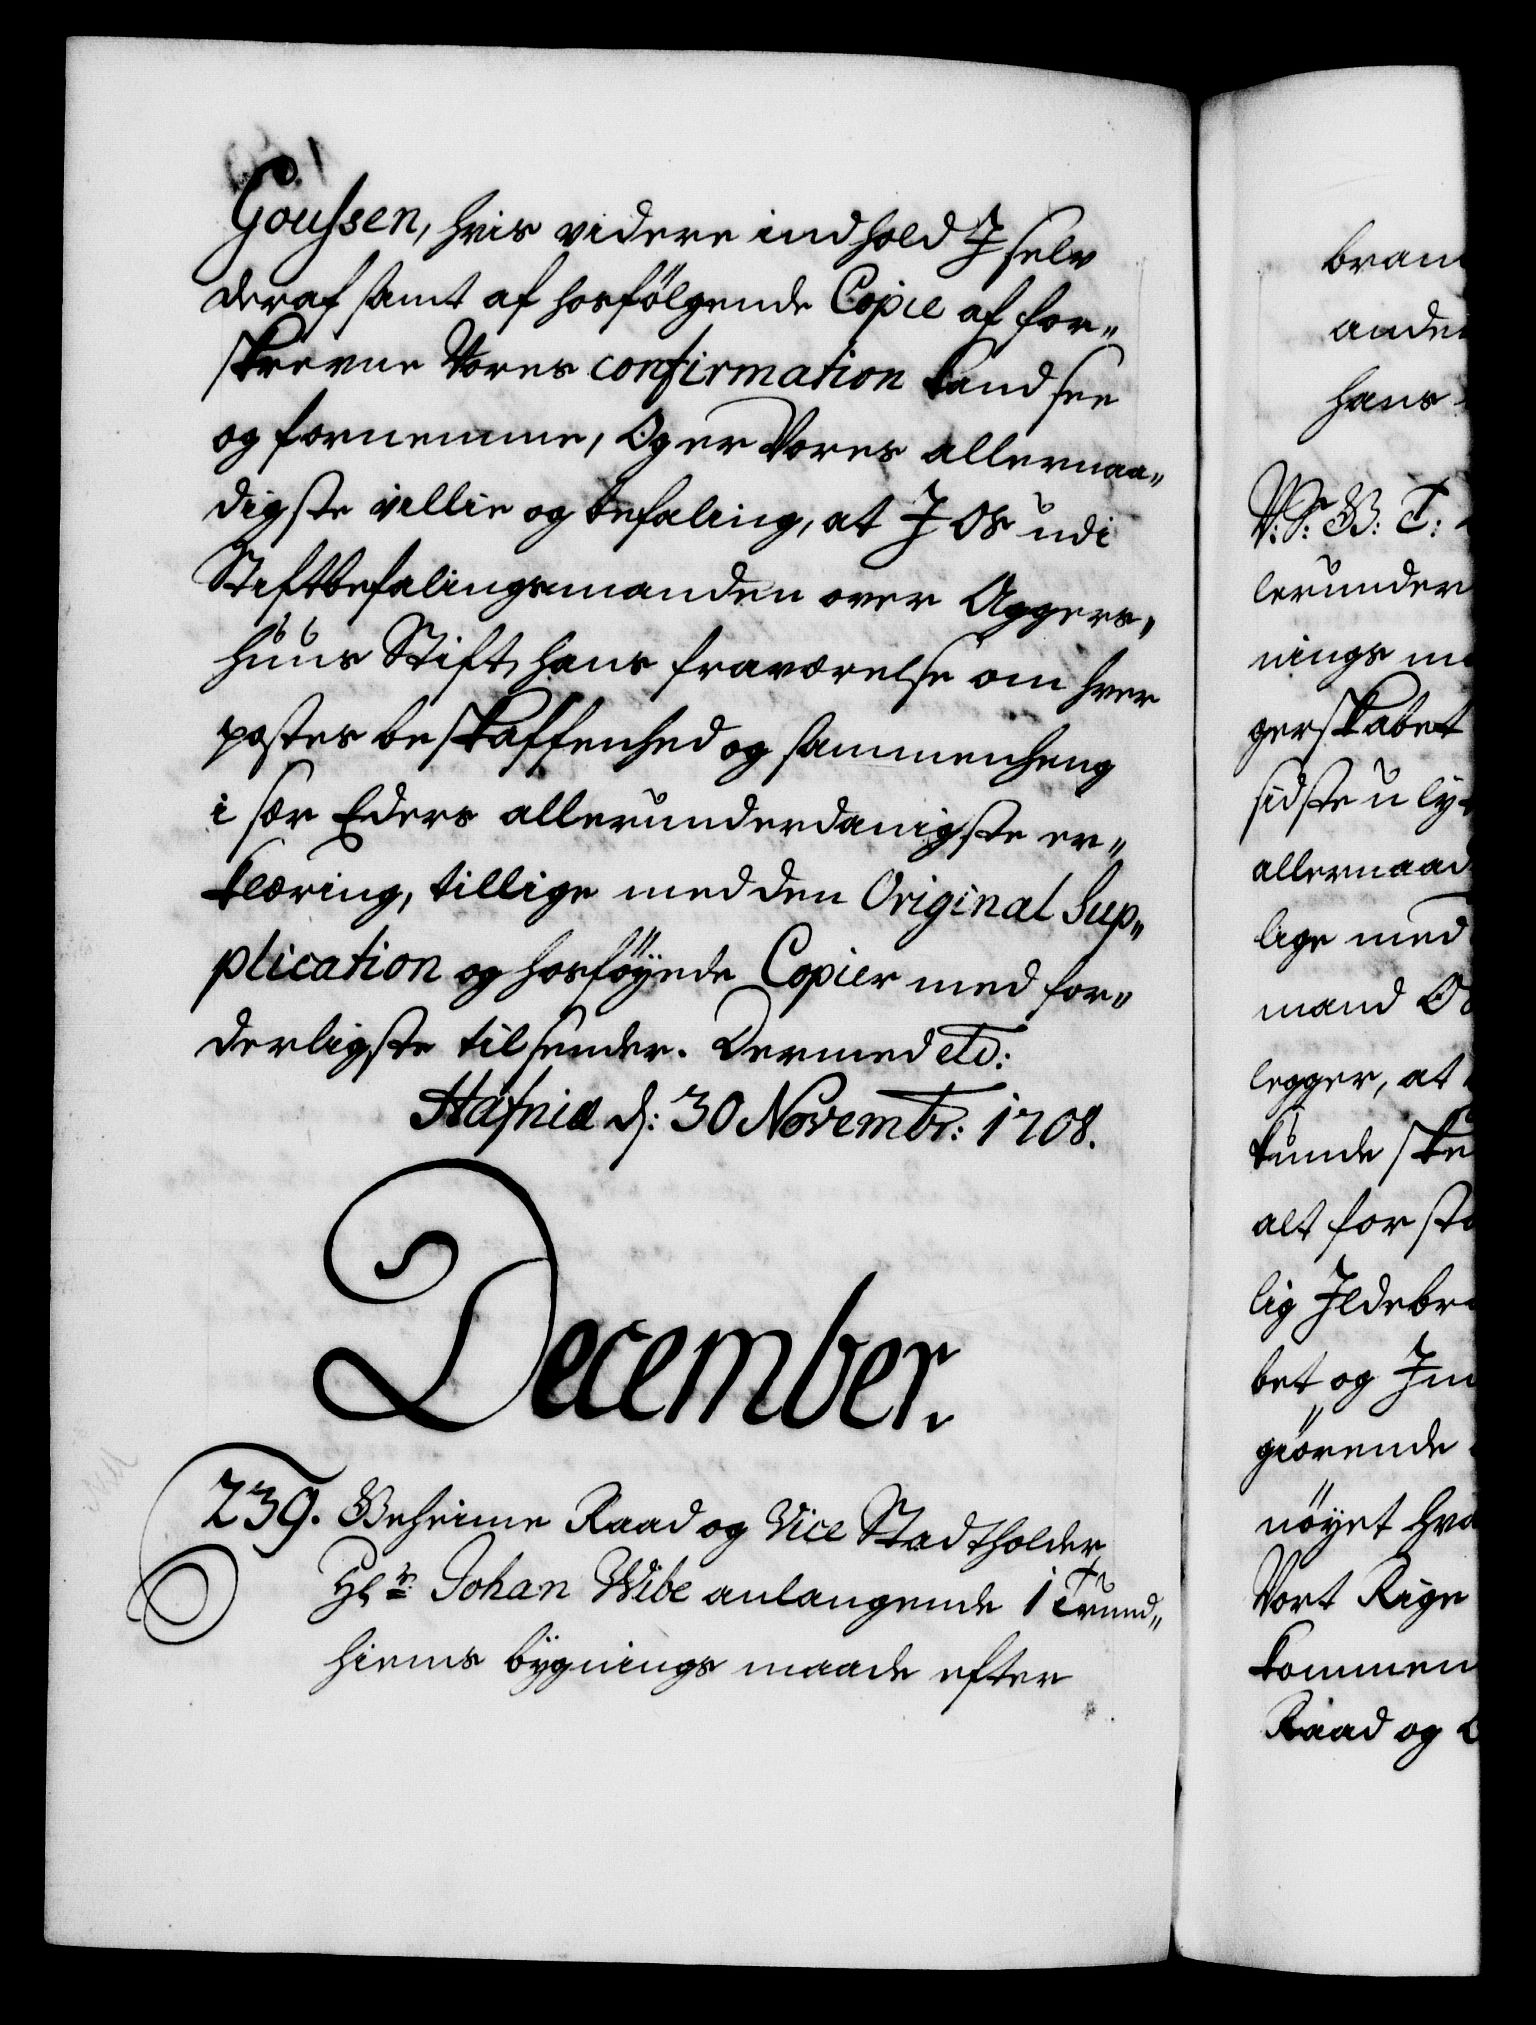 Goussen, hvis videre indhold I selv
deraf samt af hosfölgende Copie af for„
skrevne Vores confirmation kand see
og fornemme, Og er Vores allernaa„
digste villie og befaling, at I Os udi
Stiftbefalingsmanden over Aggers„
huus Stift hans fraværelse om hver
postes beskaffenhed og sammenheng
i sær Eders allerunderdanigste er„
klæring, tillige med den Original Sup„
plication og hosföyede Copier med for„
derligste tilsender. Dermed etc:
Hafniæ d: 30 Novembr: 1708.
December.
239. Geheime Raad og Vice Stadtholder
Hr: Johan Wibe anlangende i Trund„
hiems bygnings maade efter
bran
ande
hans
V: S: G: T:
lerunder
nings m
gerskabet
sidste u ly
allernaad
lige med
mand O
legger, at
kunde ske
alt for sto
lig Ildebr
bet og Im
giörende
nöyet hva
Vort Rige
kommen
Raad og